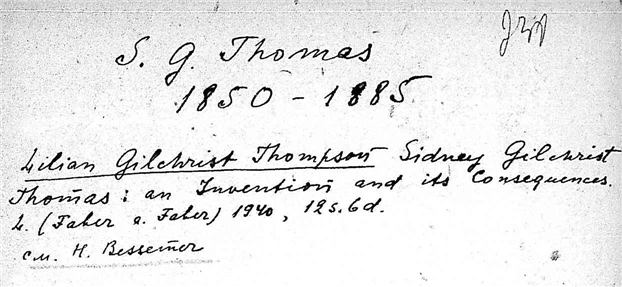 S. G. Thomas
1850 - 1885
Lilian Gilchrist Thompson Sidney Gilchrist
Thomas: an Invention and its Consequences.
L. (Faber a. Faber) 1940, 12s. 6d.
см. H. Bessemer